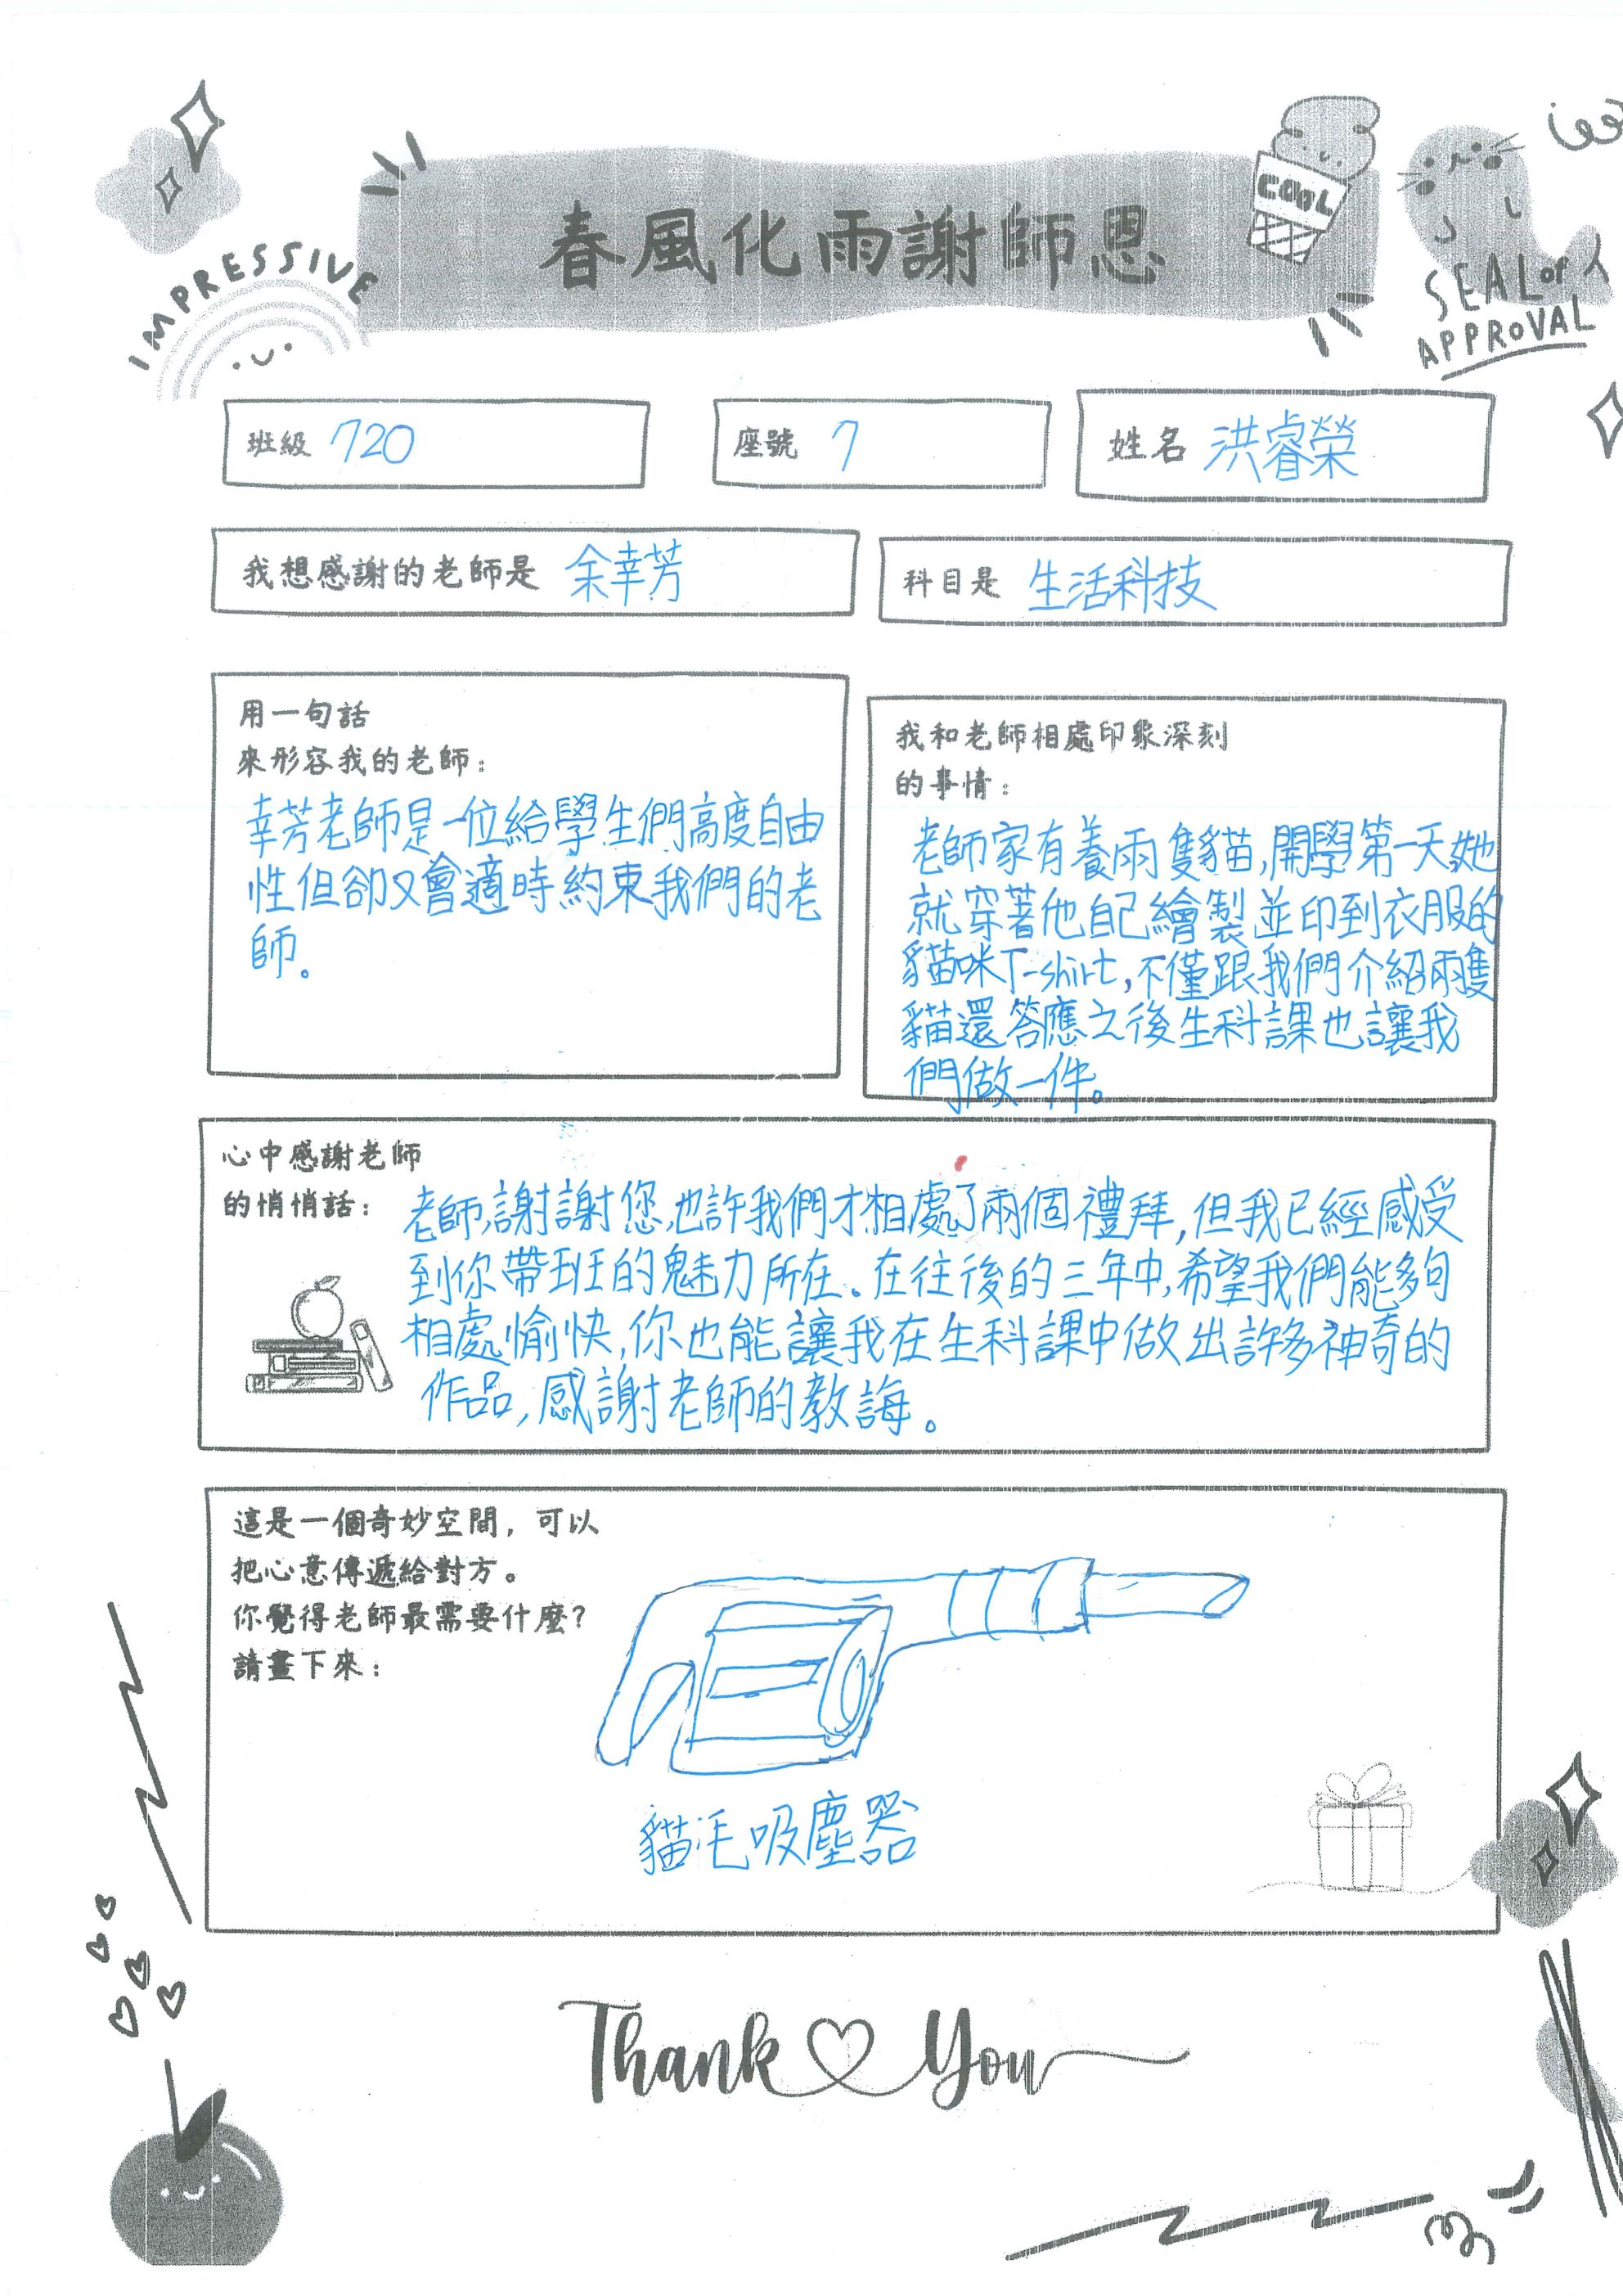 春風化雨謝師恩
IMPRESSIVE
COOL
SEAL of
APPROVAL
班級 720
座號 7
姓名 洪睿榮
我想感謝的老師是 余幸芳
科目是 生活科技
用一句話
來形容我的老師：
幸芳老師是一位給學生們高度自由
性但卻又會適時約束我們的老
師。
我和老師相處印象深刻
的事情：
老師家有養兩隻貓,開學第一天她
就穿著他自己繪製並印到衣服的
貓咪T-shirt,不僅跟我們介紹兩隻
貓還答應之後生科課也讓我
們做一件。
心中感謝老師
的悄悄話：
老師,謝謝您,也許我們才相處了兩個禮拜,但我已經感受
到你帶班的魅力所在。在往後的三年中,希望我們能夠
相處愉快,你也能讓我在生科課中做出許多神奇的
作品,感謝老師的教誨。
這是一個奇妙空間，可以
把心意傳遞給對方。
你覺得老師最需要什麼？
請畫下來：
貓毛吸塵器
Thank You